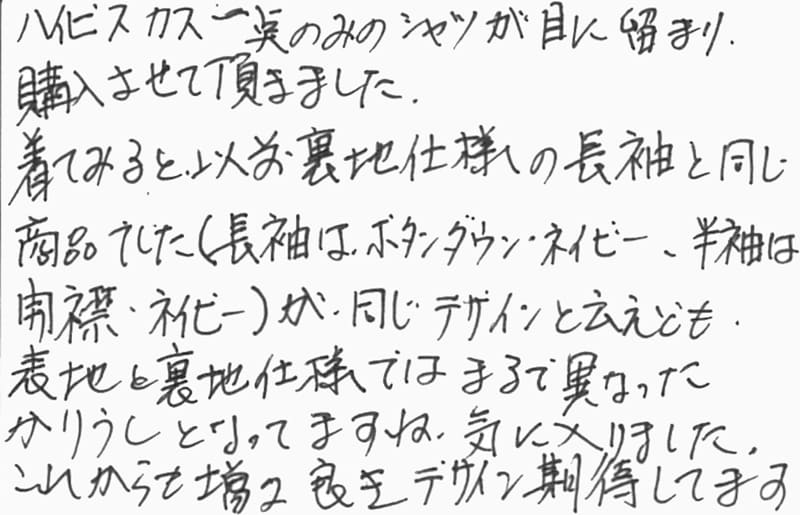 ハイビスカス一点のみのシャツが目に留まり、
購入させて頂きました。
着てみると、以前裏地仕様の長袖と同じ
商品でした(長袖は、ボタンダウン・ネイビー、半袖は
開襟・ネイビー)が、同じデザインと云えども、
表地と裏地仕様ではまるで異なった
かりうしとなってますね。気に入りました。
これからも増々良きデザイン期待してます